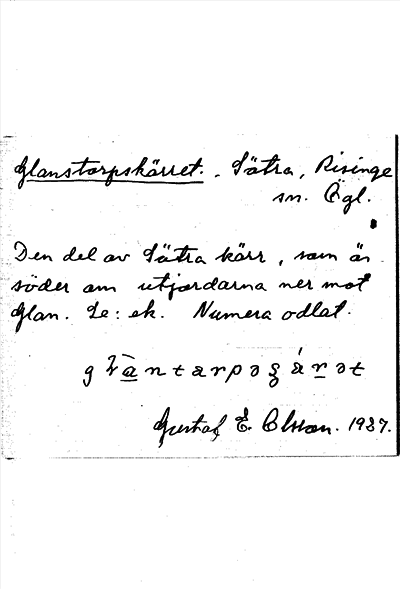 Glanstorpskärret. Sätra, Risinge
sn. Ögl.
Den del av Sätra kärr, som är
söder om utjordarna ner mot
Glan. Se: ek. Numera odlat.
Gustaf E. Olsson. 1937.